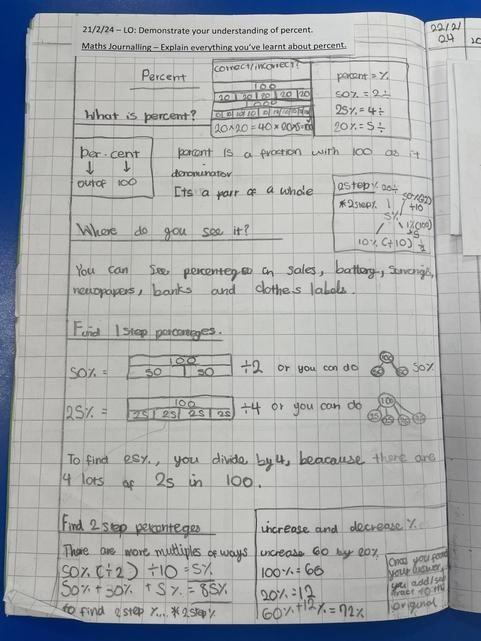 21/2/24 – LO: Demonstrate your understanding of percent.
Maths Journalling – Explain everything you've learnt about percent.
22/2/
24
Percent
correct/incorrect?
100
20 20 20 20 20
percent = %
50% = 2÷
25% = 4÷
20% = 5÷
What is percent?
per-cent
out of 100
percent is a fraction with 100 as it
denominator
Its a part of a whole
2 step %
*2 step %
5%
10% (÷10)
Where do you see it?
You can see percenteges on sales, battery, surveys,
newspapers, banks and clothes labels.
Find 1 step percenteges.
50% =
100
50 50
÷2 or you can do
100
50%
25% =
100
25 25 25 25
÷4 or you can do
100
To find 25%, you divide by 4, beacause there are
4 lots of 25 in 100.
Find 2 step percenteges
There are more multiples of ways
50% (÷2) ÷10 = 5%
50% + 30% + 5% = 85%
to find 2 step %... *2 step %
increase and decrease %
increase 60 by 20%
100% = 60
20% = 12
60% + 12% = 72%
Once you found
your answer,
you add/sub
tract to the
original